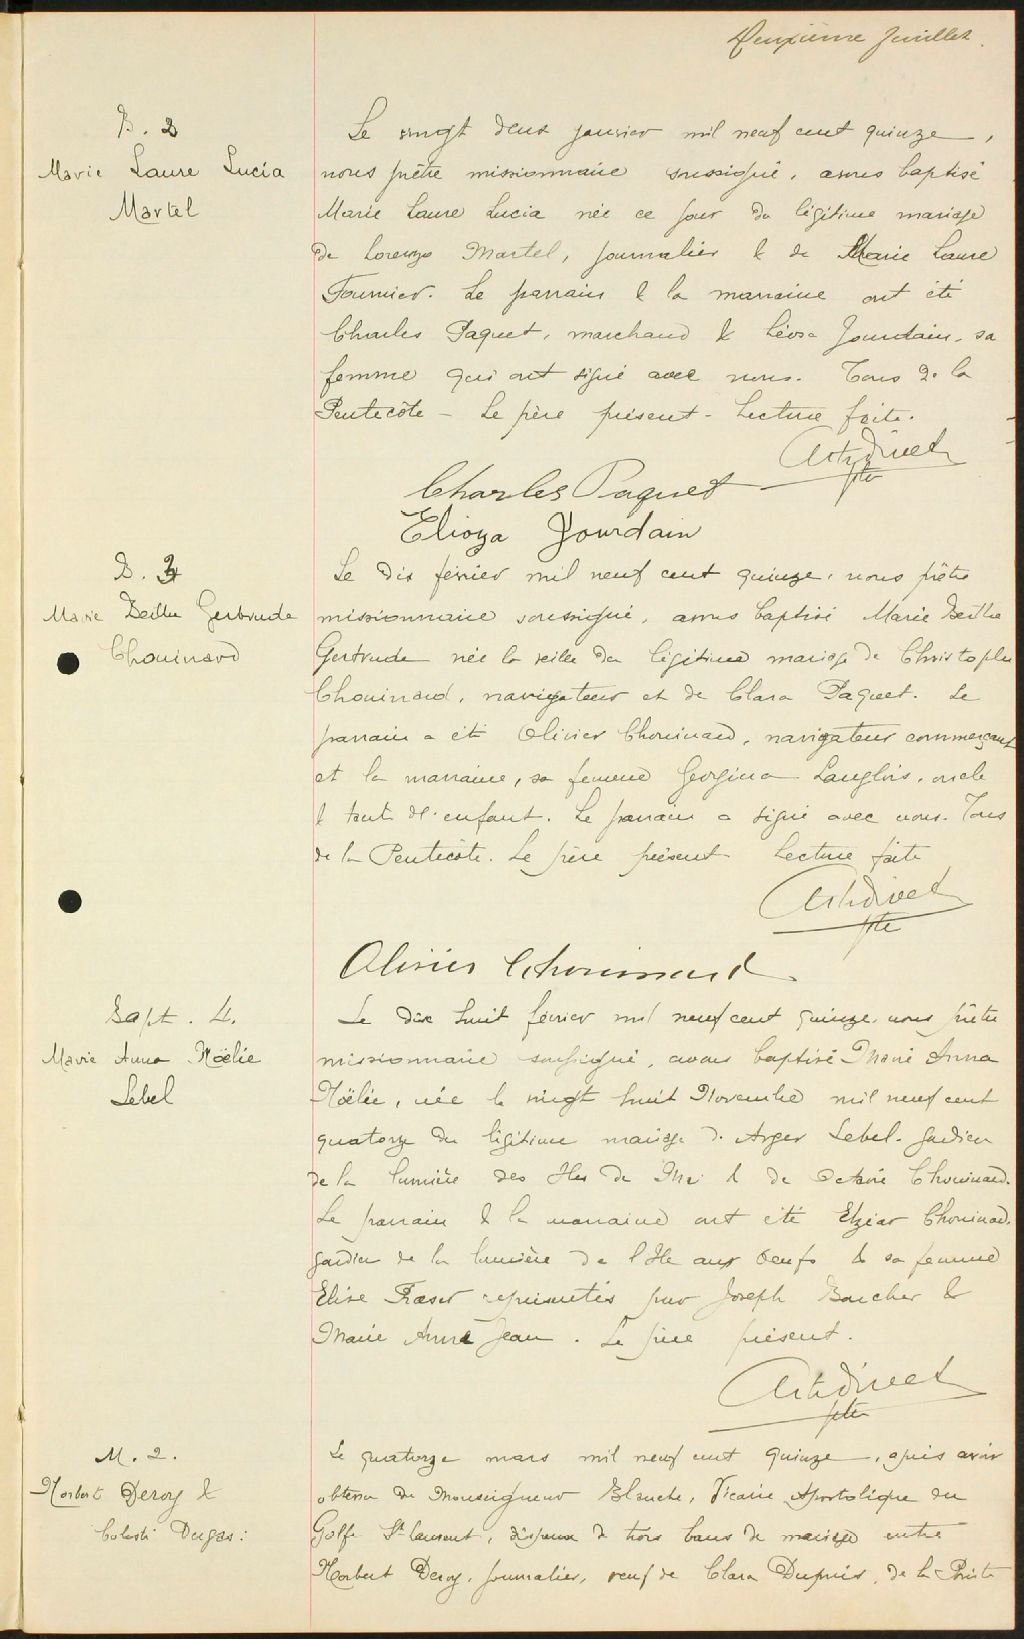 Deuxième feuillet.
B. 2
Marie Laure Lucia
Martel
Le vingt deux janvier mil neuf cent quinze,
nous prêtre missionnaire soussigné, avons baptisé
Marie Laure Lucia née ce jour du légitime mariage
de Lorenzo Martel, journalier & de Marie Laure
Fournier. Le parrain & la marraine ont été
Charles Paquet, marchand & Jourdain, sa
femme qui ont signé avec nous. Tous de la
Pentecôte - Le père présent - Lecture faite.
Arth Divet
ptre
Charles Paquet
Elioza Jourdain
B. 3
Marie Berthe Gertrude
Chouinard
Le dix février mil neuf cent quinze, nous prêtre
missionnaire soussigné, avons baptisé Marie Berthe
Gertrude née la veille du légitime mariage de Christophe
Chouinard, navigateur et de Clara Paquet. Le
parrain a été Olivier Chouinard, navigateur commerçant
et la marraine, sa femme Georgina Langlois, oncle
& tante de l'enfant. Le parrain a signé avec nous. Tous
de la Pentecôte. Le père présent Lecture faite
Arth Divet
ptre
Olivier Chouinard
Bapt. 4.
Marie Anna Noëlie
Lebel
Le dix huit février mil neuf cent quinze, nous prêtre
missionnaire soussigné, avons baptisé Marie Anna
Noëlie, née le vingt huit Novembre mil neuf cent
quatorze du légitime mariage d. Lebel. gardien
de la lumière des Iles de Mai & de Octavie Chouinard.
Le parrain & la marraine ont été Elzéar Chouinard,
gardien de la lumière de l'Ile aux Oeufs & sa femme
Elise Fraser représentés par Joseph Boucher &
Marie Anna Jean. Le père présent.
Arth Divet
ptre
M. 2.
Norbert Deroy &
Céleste Dugas:
Le quatorze mars mil neuf cent quinze, après avoir
obtenu de Monseigneur Blanche, Vicaire Apostolique du
Golfe St Laurent, dispense de trois bans de mariage entre
Norbert Deroy, journalier, veuf de Clara Dupuis, de la Pointe